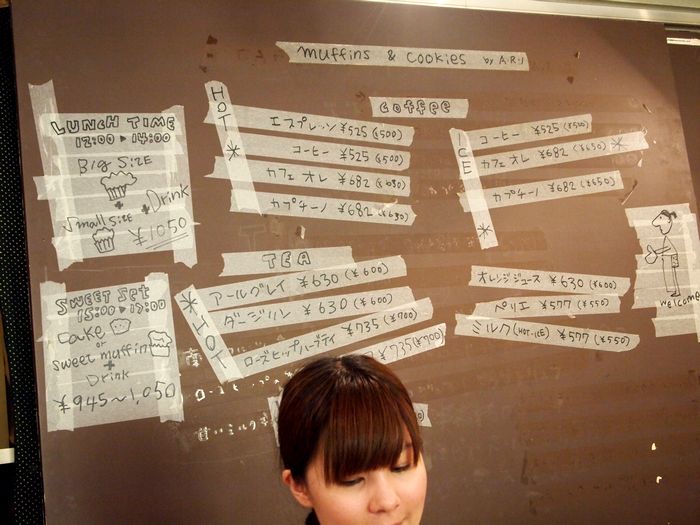 muffins & cookies by A.R.I
LUNCH TIME
12:00 ▶ 14:00
BIG SIZE
+ Drink
small SIZE +
¥1050
SWEET Set
15:00 ▶ 17:00
cake
or
sweet muffin
+
Drink
¥945～1,050
coffee
HOT *
エスプレッソ ¥525 (¥500)
コーヒー ¥525 (¥500)
カフェオレ ¥682 (¥650)
カプチーノ ¥682 (¥650)
ICE *
コーヒー ¥525 (¥500)
カフェオレ ¥682 (¥650) *
カプチーノ ¥682 (¥650)
TEA
* HOT
アールグレイ ¥630 (¥600)
ダージリン ¥630 (¥600)
ローズヒップハーブティ ¥735 (¥700)
¥735 (¥700)
オレンジジュース ¥630 (¥600)
ペリエ ¥577 (¥550)
ミルク (HOT・ICE) ¥577 (¥550)
welcome